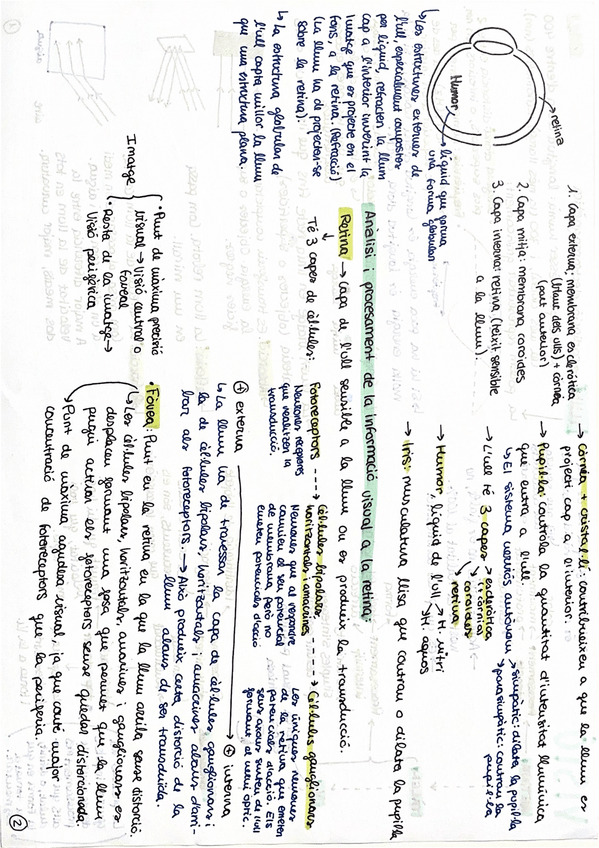 → Còrnia + cristal·lí: contribueixen a que la llum es
projecti cap a l'interior.
→ Pupil·la: controla la quantitat d'intensitat lluminica
que entra a l'ull.
↳ El sistema nerviós autònom → simpàtic: dilata la pupil·la
→ parasimpàtic: contrau la
pupil·la
→ L'ull té 3 capes → escleròtica
(i còrnia)
→ coroides
→ retina
→ Humor, líquid de l'ull → H. vitri
→ H. aquós
→ Iris: musculatura llisa que contrau o dilata la pupil·la
1. Capa externa: membrana escleròtica
(blanc dels ulls) + còrnea
(part anterior)
2. Capa mitja: membrana coroides
3. Capa interna: retina (teixit sensible
a la llum).
retina
Humor
líquid que forma
una forma globular
↳ Les estructures externes de
l'ull, especialment compostes
per líquid, refracten la llum
cap a l'interior invertint la
imatge que es projecte en el
fons, a la retina. (Refracció)
(La llum ha de projectar-se
sobre la retina).
↳ La estructura globular de
l'ull capta millor la llum
que una estructura plana.
Anàlisi i processament de la informació visual a la retina:
Retina → capa de l'ull sensible a la llum on es produeix la transducció.
Té 3 capes de cèl·lules:
Fotoreceptors ---→ Cèl·lules bipolars, horitzontals i amacrines ---→ Cèl·lules ganglionars
Neurones receptores
que realitzen la
transducció.
Neurones que al respondre
canvien el seu potencial
de membrana, però no
emeten potencials d'acció
Les úniques neurones
de la retina que emeten
potencials d'acció. Els
seus axons surten de l'ull
formant el nervi òptic.
⊕ externa → ⊕ interna
↳ La llum ha de travessar la capa de cèl·lules ganglionars i
la de cèl·lules bipolars, horitzontals i amacrines abans d'arri-
bar als fotoreceptors. → Això produeix certa distorsió de la
llum abans de ser transduïda.
Imatge
• Punt de màxima precisió
visual → Visió central o
foveal
• Resta de la imatge →
Visió perifèrica
• Fòvea: Punt en la retina en la que la llum arriba sense distorsió.
↳ Les cèl·lules bipolars, horitzontals, amacrines i ganglionars es
desplacen formant una fosa que permet que la llum
pugui activar els fotoreceptors sense quedar distorsionada.
↳ Punt de màxima agudesa visual, ja que conté major
concentració de fotoreceptors que la perifèria.
2